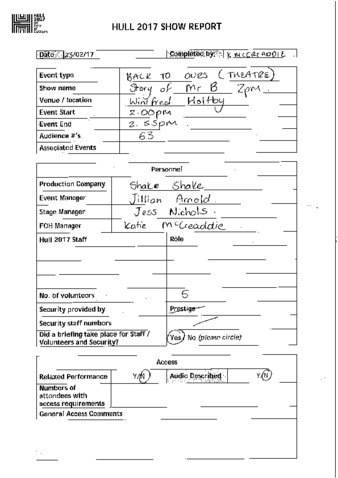 HULL
2017
HULL 2017 SHOW REPORT
Date: 23/02/17 Completed by: K MCCREADDIE
Event type BACK TO OURS (THEATRE)
Show name Story of Mr B 2pm.
Venue / location Winifred Holtby
Event Start 2.00pm
Event End 2.55pm
Audience #'s 63
Associated Events
Personnel
Production Company Shake Shake
Event Manager Jillian Arnold
Stage Manager Jess Nichols.
FOH Manager Katie McCreaddie
Hull 2017 Staff Role
No. of volunteers 5
Security provided by Prestige
Security staff numbers
Did a briefing take place for Staff / Volunteers and Security? Yes / No (please circle)
Access
Relaxed Performance Y/N Audio Described Y/N
Numbers of
attendees with
access requirements
General Access Comments